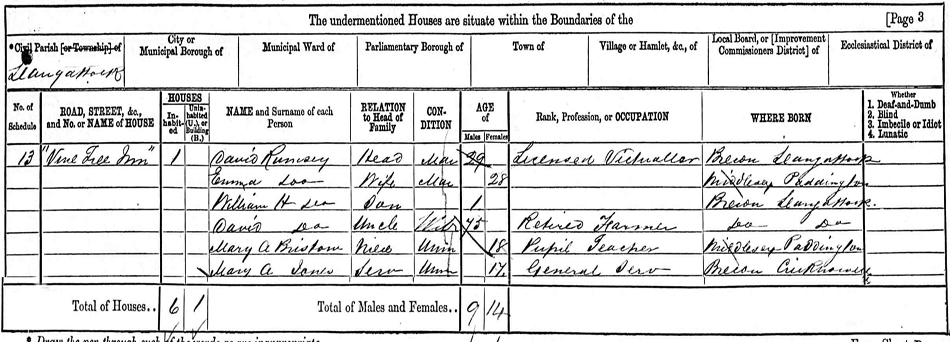 The undermentioned Houses are situate within the Boundaries of the [Page 3
*Civil Parish [or Township] of
City or Municipal Borough of
Municipal Ward of
Parliamentary Borough of
Town of
Village or Hamlet, &c., of
Local Board, or [Improvement Commissioners District] of
Ecclesiastical District of
Llangattock
No. of Schedule
ROAD, STREET, &c., and No. or NAME of HOUSE
HOUSES
In-habit-ed
Unin-habited (U.), or Building (B.)
NAME and Surname of each Person
RELATION to Head of Family
CON-DITION
AGE of
Males
Females
Rank, Profession, or OCCUPATION
WHERE BORN
Whether
1. Deaf-and-Dumb
2. Blind
3. Imbecile or Idiot
4. Lunatic
13 "Vine Tree Inn" 1 David Rumsey Head Mar 29 Licensed Victualler Brecon Llangattock
Emma Do Wife Mar 28 Middlesex Paddington
William H Do Son 1 Brecon Llangattock
David Do Uncle Widr 75 Retired Farmer Do Do
Mary A Bristow Niece Unm 18 Pupil Teacher Middlesex Paddington
Mary A Jones Serv Unm 17 General Serv Brecon Crickhowell
Total of Houses.. 6 1 Total of Males and Females.. 9 14